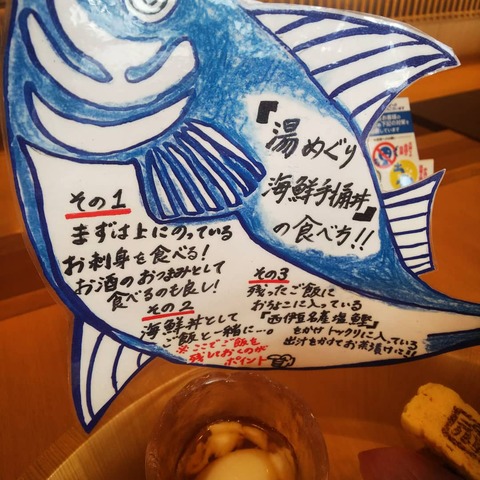 『湯めぐり
海鮮手桶丼』
の食べ方!!
その1
まずは上にのっている
お刺身を食べる!
お酒のおつまみとして
食べるのも良し!
その2
海鮮丼として
ご飯と一緒に…。
※ここでご飯を
残しておくのが
ポイント
その3
残ったご飯に
おなこに入っている
『西伊豆名産塩鰹』
をかけトックリに入っている
出汁をかけてお茶漬けで!!